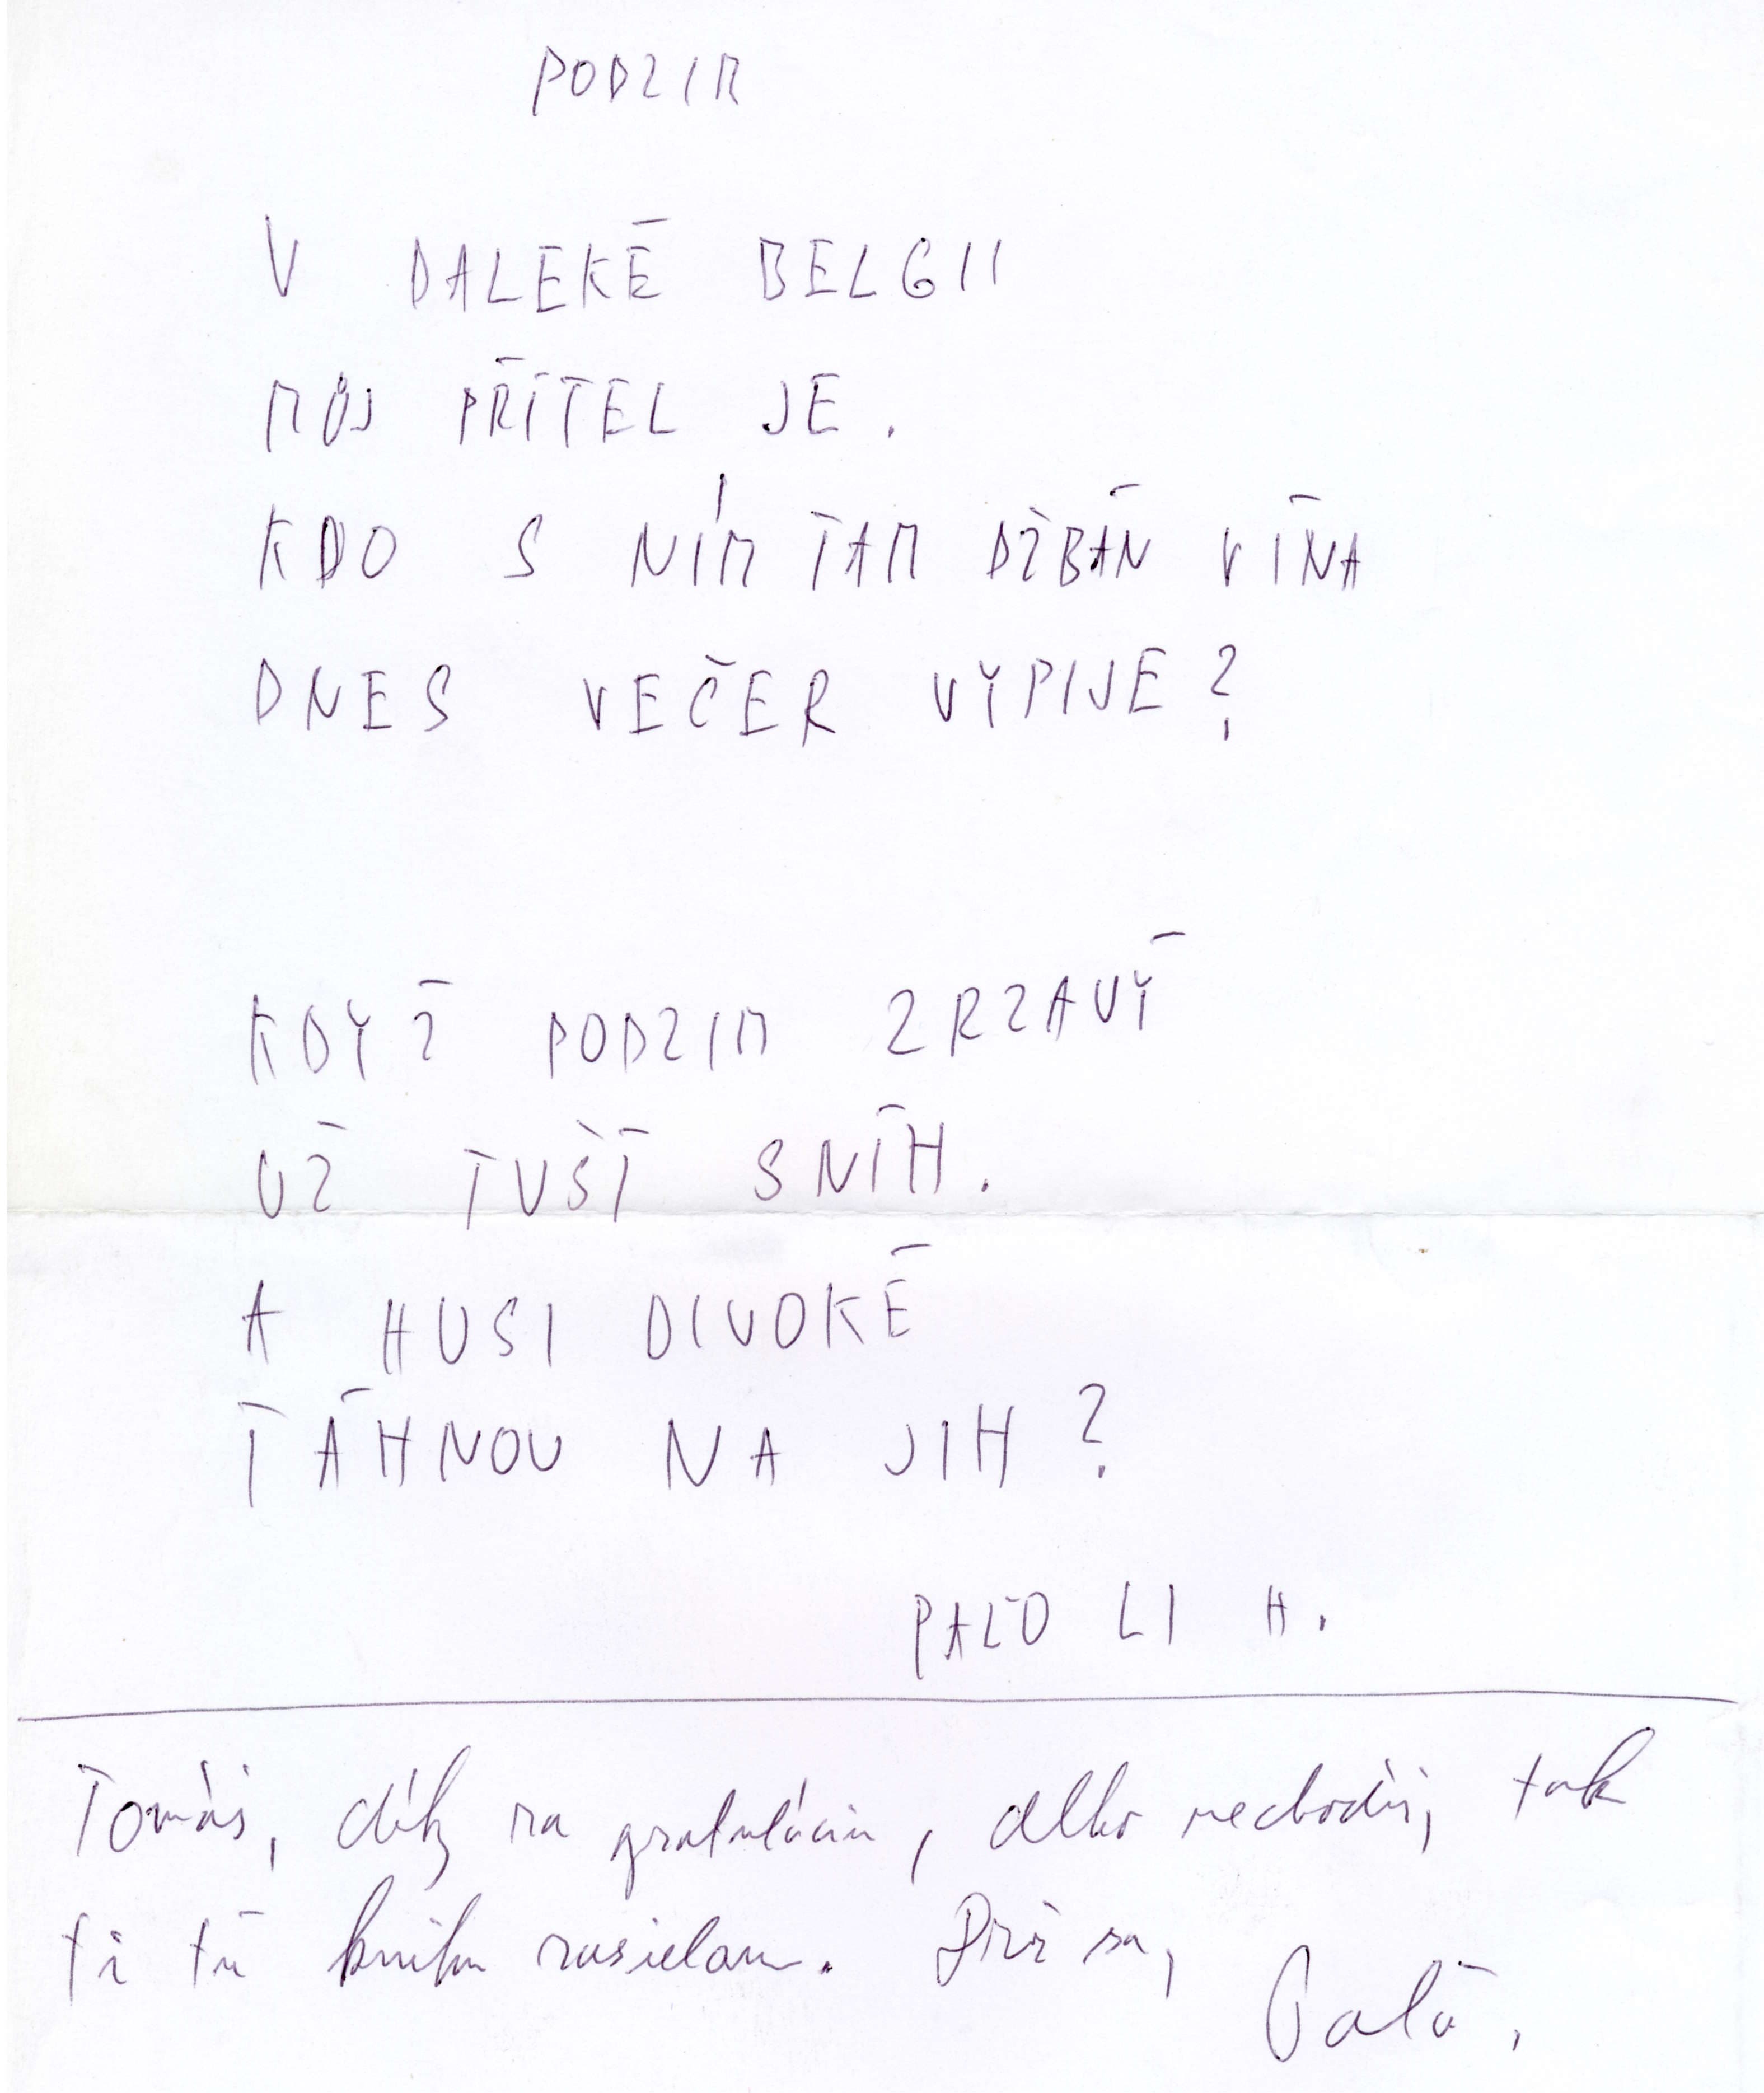 PODZIM
V DALEKÉ BELGII
MŮJ PŘÍTEL JE.
KDO S NÍM TAM DŽBÁN VÍNA
DNES VEČER VYPIJE?
KDYŽ PODZIM ZRZAVÝ
UŽ TUŠÍ SNÍH.
A HUSI DIVOKÉ
TÁHNOU NA JIH?
PAĽO LI H.
Tomáš, díky za gratuláciu, dlho nechodíš, tak
ti tú knihu zasielam. Drž sa,
Paľo.